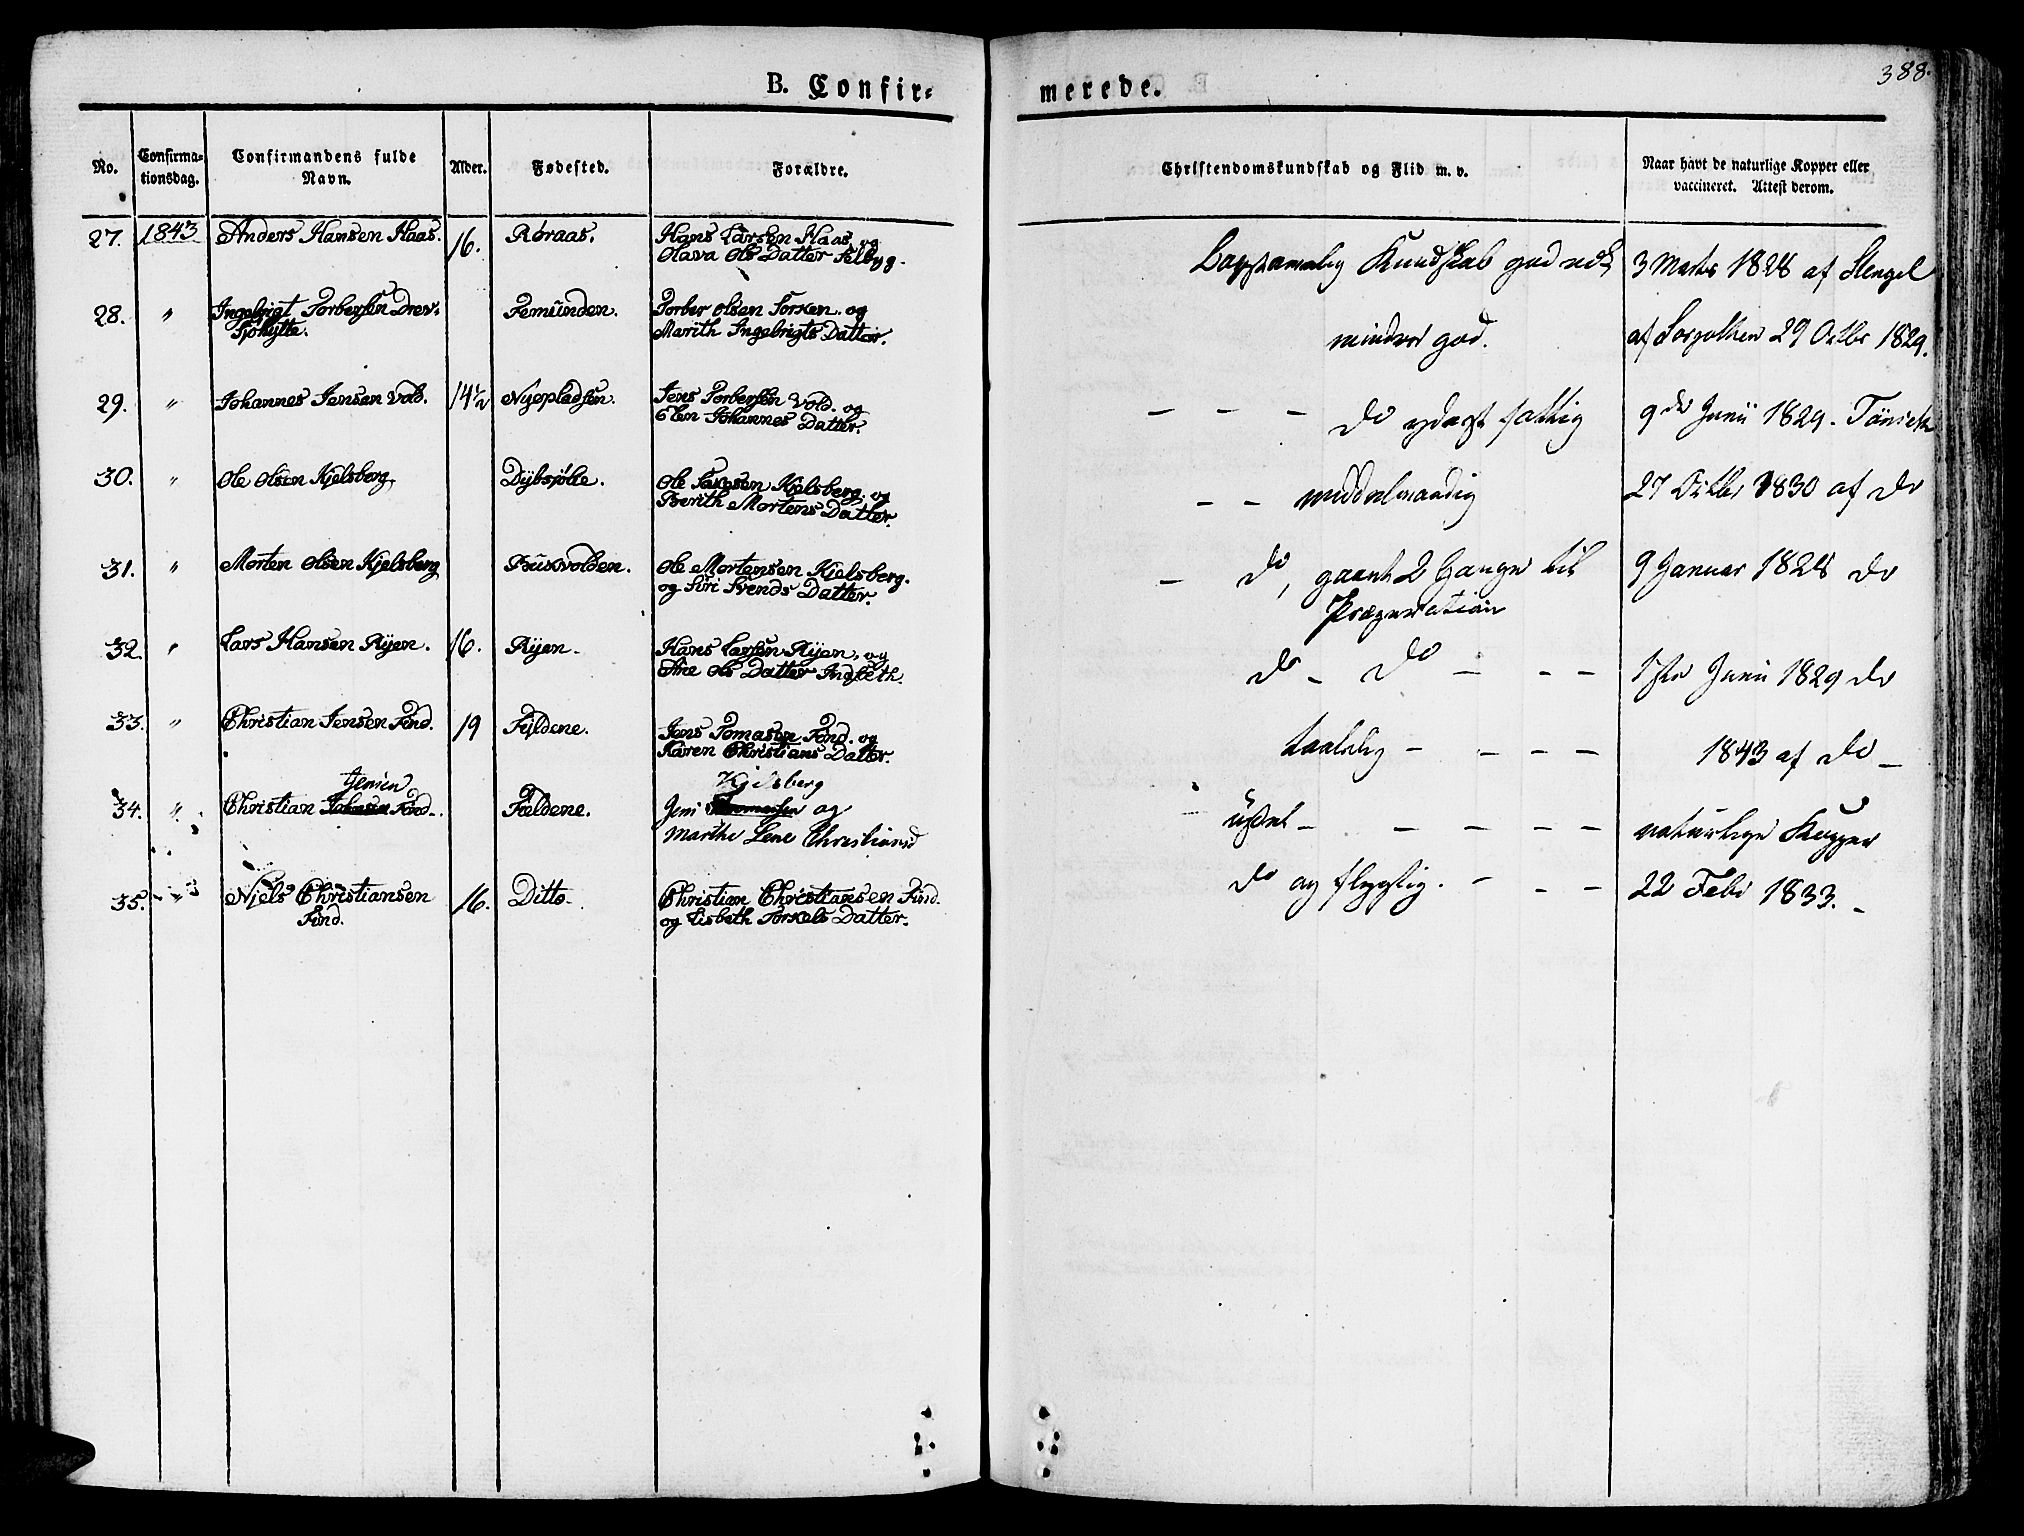 388.
B. Confir- merede.
No. Confirma-tionsdag. Confirmandens fulde Navn. Alder. Fødested. Forældre. Christendomskundskab og Flid m. v. Naar havt de naturlige Kopper eller vaccineret. Attest derom.
27. 1843 Anders Hansen Haas. 16. Røraas. Hans Larsen Haas og Kundskab god nok 3 Marts 1828 af Stengel
Olava Ols Datter Selbyg.
28. " Ingebrigt Torbersen Drev- Femunden. Torber Olsen Sorken. og mindre god. af 29 Octbr 1829.
sjøhytte. Marith Ingebrigts Datter.
29. " Johannes Jensen Vold. 14½ Nyepladsen. Jens Torbersen Vold. og - - - do yderst fattig 9de Junii 1829. Tönseth
Elen Johannes Datter.
30. " Ole Olsen Kjelsberg Dybsjölie. Ole Kjelsberg. og - - middelmaadig 27 Octbr 1830 af do
Berith Mortens Datter.
31. " Morten Olsen Kjelsberg Buskvolden. Ole Mortensen Kjelsberg. - do, gaaet 2 Gange til 9 Januar 1828 do
og Siri Svends Datter. Præparation
32. " Lars Hansen Ryen. 16. Ryen. Hans Larsen Ryen, og do - do - - - 1ste Junii 1829 do
Ane Ols Datter Indseth.
33. " Christian Jensen Find. 19 Fjeldene. Jens Tomasen Find. og taalelig - - - - 1843 af do -
Karen Christians Datter.
Jensen Kjelsberg
34. " Christian Find. Fjeldene. Jens og - - - - naturlige Kopper
Marthe Lene Christiansd
35. - " Niels Christiansen 16. Ditto. Christian Christiansen Find. do og flygtig. - - - 22 Febr 1833. -
Find. og Lisbeth Torkels Datter.